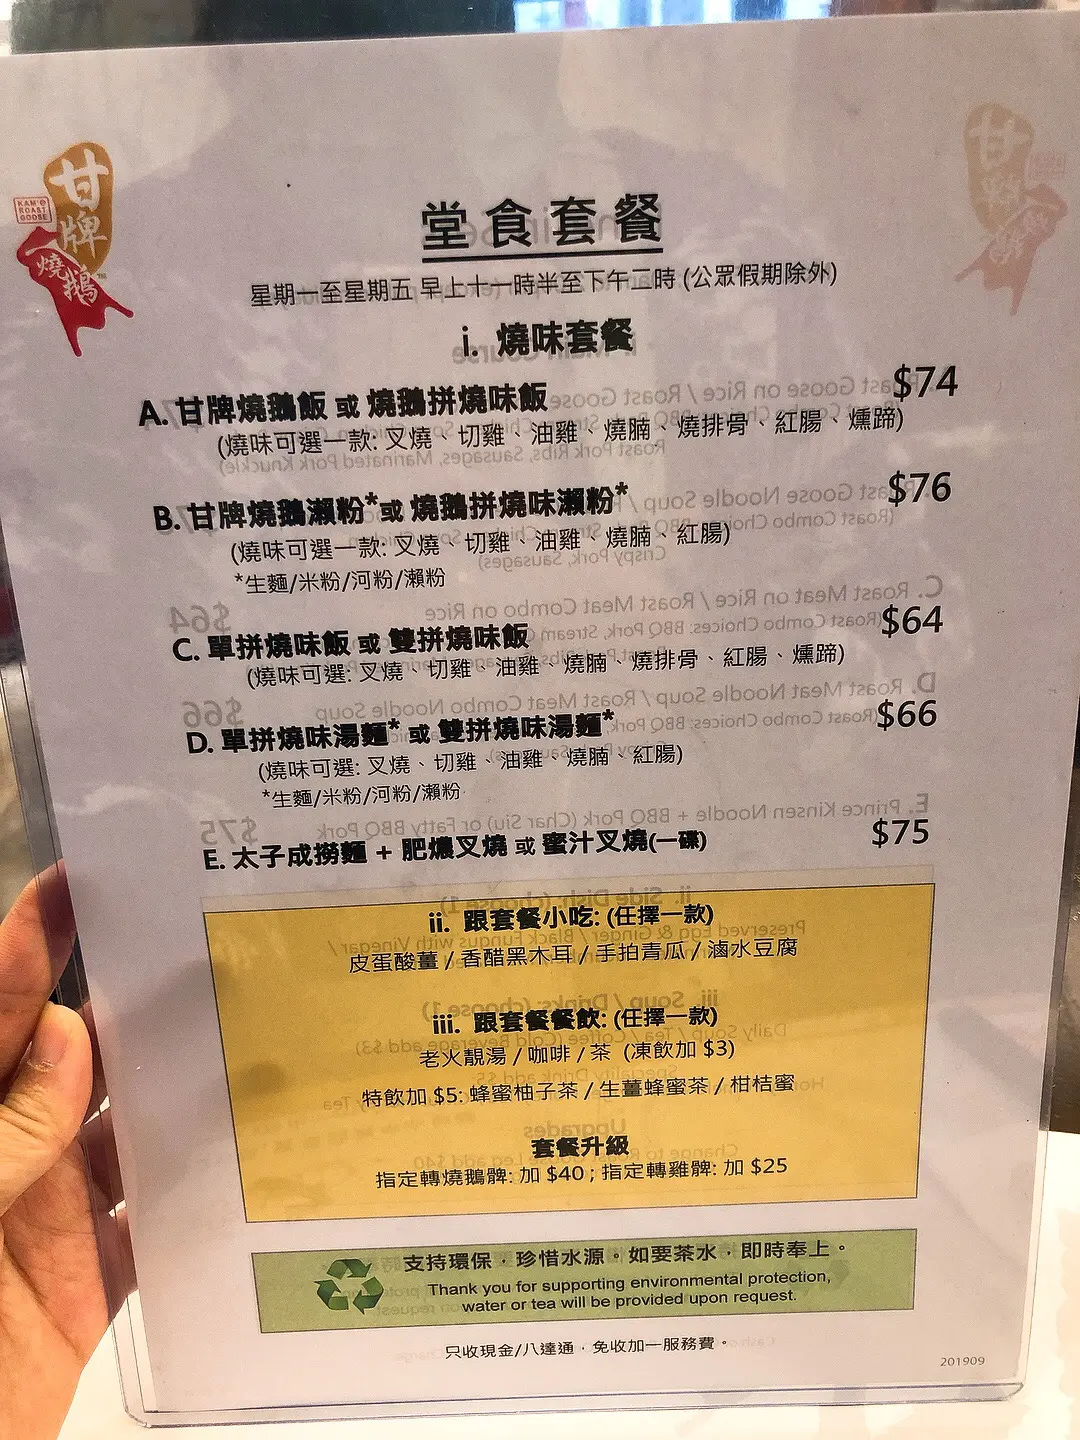 甘牌
燒鵝
KAM'S
ROAST
GOOSE
堂食套餐
星期一至星期五 早上十一時半至下午二時 (公眾假期除外)
i. 燒味套餐
A. 甘牌燒鵝飯 或 燒鵝拼燒味飯 $74
(燒味可選一款: 叉燒、切雞、油雞、燒腩、燒排骨、紅腸、燻蹄)
B. 甘牌燒鵝瀨粉*或 燒鵝拼燒味瀨粉* $76
(燒味可選一款: 叉燒、切雞、油雞、燒腩、紅腸)
*生麵/米粉/河粉/瀨粉
C. 單拼燒味飯 或 雙拼燒味飯 $64
(燒味可選: 叉燒、切雞、油雞、燒腩、燒排骨、紅腸、燻蹄)
D. 單拼燒味湯麵* 或 雙拼燒味湯麵* $66
(燒味可選: 叉燒、切雞、油雞、燒腩、紅腸)
*生麵/米粉/河粉/瀨粉
E. 太子成撈麵 + 肥燶叉燒 或 蜜汁叉燒(一碟) $75
ii. 跟套餐小吃: (任擇一款)
皮蛋酸薑 / 香醋黑木耳 / 手拍青瓜 / 滷水豆腐
iii. 跟套餐餐飲: (任擇一款)
老火靚湯 / 咖啡 / 茶 (凍飲加 $3)
特飲加 $5: 蜂蜜柚子茶 / 生薑蜂蜜茶 / 柑桔蜜
套餐升級
指定轉燒鵝髀: 加 $40 ; 指定轉雞髀: 加 $25
支持環保，珍惜水源。如要茶水，即時奉上。
Thank you for supporting environmental protection,
water or tea will be provided upon request.
只收現金/八達通，免收加一服務費。
201909